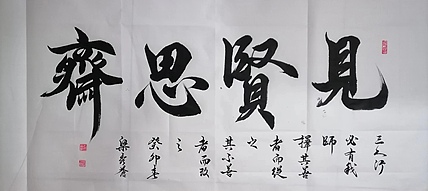 見賢思齊
三人行
必有我
師
擇其善
者而從
之
其不善
者而改
之
癸卯春
梁